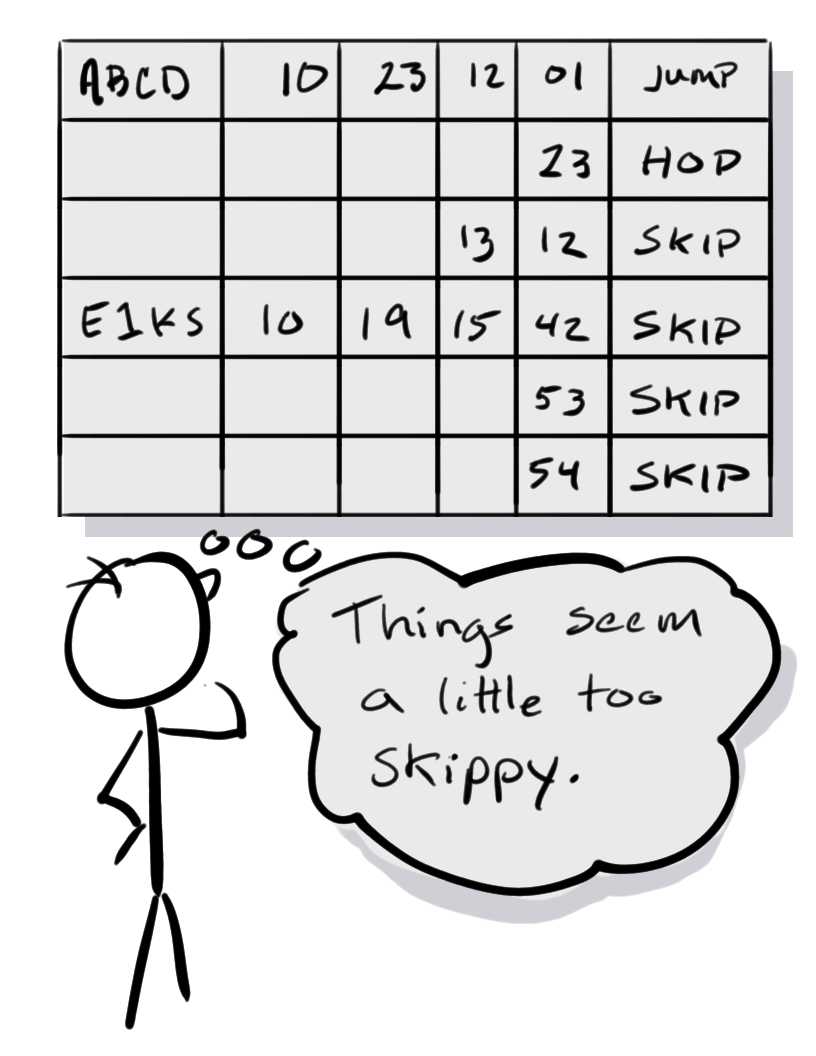 ABCD 10 23 12 01 JUMP
23 HOP
13 12 SKIP
E1KS 10 19 15 42 SKIP
53 SKIP
54 SKIP
Things seem
a little too
skippy.